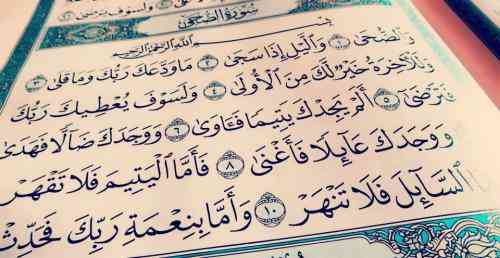 وَلَسَوْفَ يَرْضَىٰ
سُورَةُ الضُّحَىٰ
بِسْمِ ٱللَّهِ ٱلرَّحْمَٰنِ ٱلرَّحِيمِ
وَٱلضُّحَىٰ ١ وَٱلَّيْلِ إِذَا سَجَىٰ ٢ مَا وَدَّعَكَ رَبُّكَ وَمَا قَلَىٰ ٣
وَلَلْأٓخِرَةُ خَيْرٌ لَّكَ مِنَ ٱلْأُولَىٰ ٤ وَلَسَوْفَ يُعْطِيكَ رَبُّكَ
فَتَرْضَىٰٓ ٥ أَلَمْ يَجِدْكَ يَتِيمًا فَـَٔاوَىٰ ٦ وَوَجَدَكَ ضَآلًّا فَهَدَىٰ
وَوَجَدَكَ عَآئِلًا فَأَغْنَىٰ ٨ فَأَمَّا ٱلْيَتِيمَ فَلَا تَقْهَرْ
ٱلسَّآئِلَ فَلَا تَنْهَرْ ١٠ وَأَمَّا بِنِعْمَةِ رَبِّكَ فَحَدِّثْ